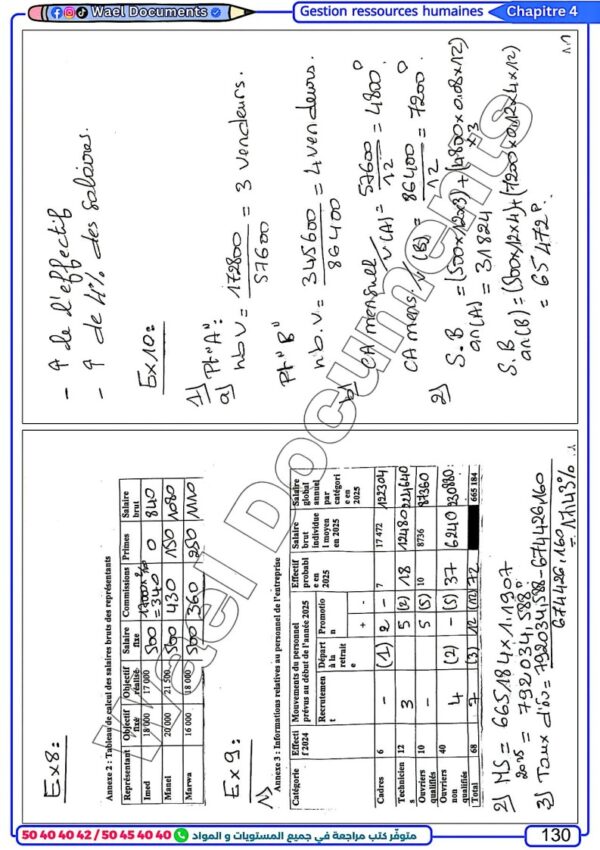 Wael Documents
Gestion ressources humaines
Chapitre 4
Ex8:
Annexe 2 : Tableau de calcul des salaires bruts des représentants
Représentant | Objectif fixé | Objectif réalisé | Salaire fixe | Commissions | Primes | Salaire brut
Imed | 18 000 | 17 000 | 500 | 17000 x 2% = 340 | 0 | 840
Manel | 20 000 | 21 500 | 500 | 430 | 150 | 1080
Marwa | 16 000 | 18 000 | 500 | 360 | 250 | 1110
Ex9:
1)
Annexe 3 : Informations relatives au personnel de l'entreprise
Catégorie | Effectif 2024 | Mouvements du personnel prévus au début de l'année 2025 | Effectif probable en 2025 | Salaire brut individuel moyen en 2025 | Salaire global annuel par catégorie en 2025
Recrutement | Départ à la retraite | Promotion
+ | -
Cadres | 6 | - | (1) | 2 | - | 7 | 17 472 | 122304
Techniciens | 12 | 3 | 5 | (2) | 18 | 12480 | 224640
Ouvriers qualifiés | 10 | - | 5 | (5) | 10 | 8736 | 87360
Ouvriers non qualifiés | 40 | 4 | (2) | - | (5) | 37 | 6240 | 230880
Total | 68 | 7 | (3) | 12 | (12) | 72 | 665 184
2) MS 2025 = 665184 x 1.1907
= 792034,588
3) Taux d'év = 792034,588 - 674426,160
674426,160
= 17,43%
- ↑ de l'effectif
- ↑ de 4% des salaires.
Ex10:
1) Pt "A":
a) nb V = 172800 / 57600 = 3 vendeurs.
Pt "B"
nb.V = 345600 / 86400 = 4 vendeurs.
b) CA mensuel / V (A) = 57600 / 12 = 4800
CA mens. / V (B) = 86400 / 12 = 7200
2) S.B an (A) = (500x12x3) + (4800 x 0.08x12) x3
= 31824
S.B an (B) = (500x12x4) + (7200x0.12x4x12)
= 65472
Wael Documents
50 40 40 42 / 50 45 40 40
متوفّر كتب مراجعة في جميع المستويات و المواد
130